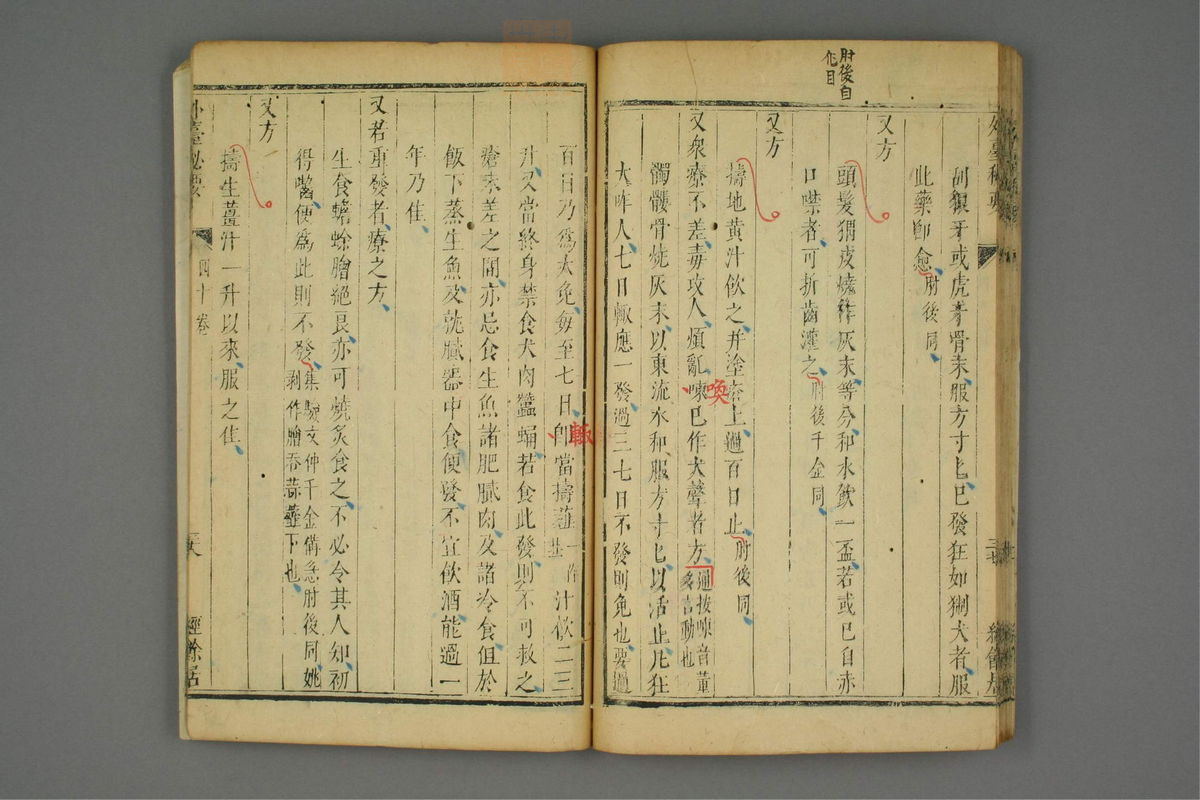 肘後自
作目
外臺秘要
刮狼牙或虎牙骨末服方寸匕已發狂如猘犬者服
此藥即愈肘後同
又方
頭髮猬皮燒作灰末等分和水飲一盃若或已自赤
口噤者可折齒灌之肘後千金同
又方
擣地黃汁飲之并塗瘡上過百日止肘後同
又衆療不差毒攻人煩亂㖦已作犬聲者方
通按㖦音董
多言動也
喚
髑髏骨燒灰末以東流水和服方寸匕以活止凡狂
犬咋人七日輙應一發過三七日不發則免也要過
百日乃爲大免每至七日即當擣薤
一作
韮
汁飲二三
輙
升又當終身禁食犬肉蠶蛹若食此發則不可救之
瘡未差之間亦忌食生魚諸肥膩肉及諸冷食但於
飯下蒸生魚及就膩器中食便發不宜飲酒能過一
年乃佳
又若重發者療之方
生食蟾蜍膾絕良亦可燒炙食之不必令其人知初
得嚙便爲此則不發
集驗文仲千金備急肘後同姚
剥作膾吞蒜虀下也
又方
擣生薑汁一升以來服之佳
外臺秘要
四十卷
經餘居